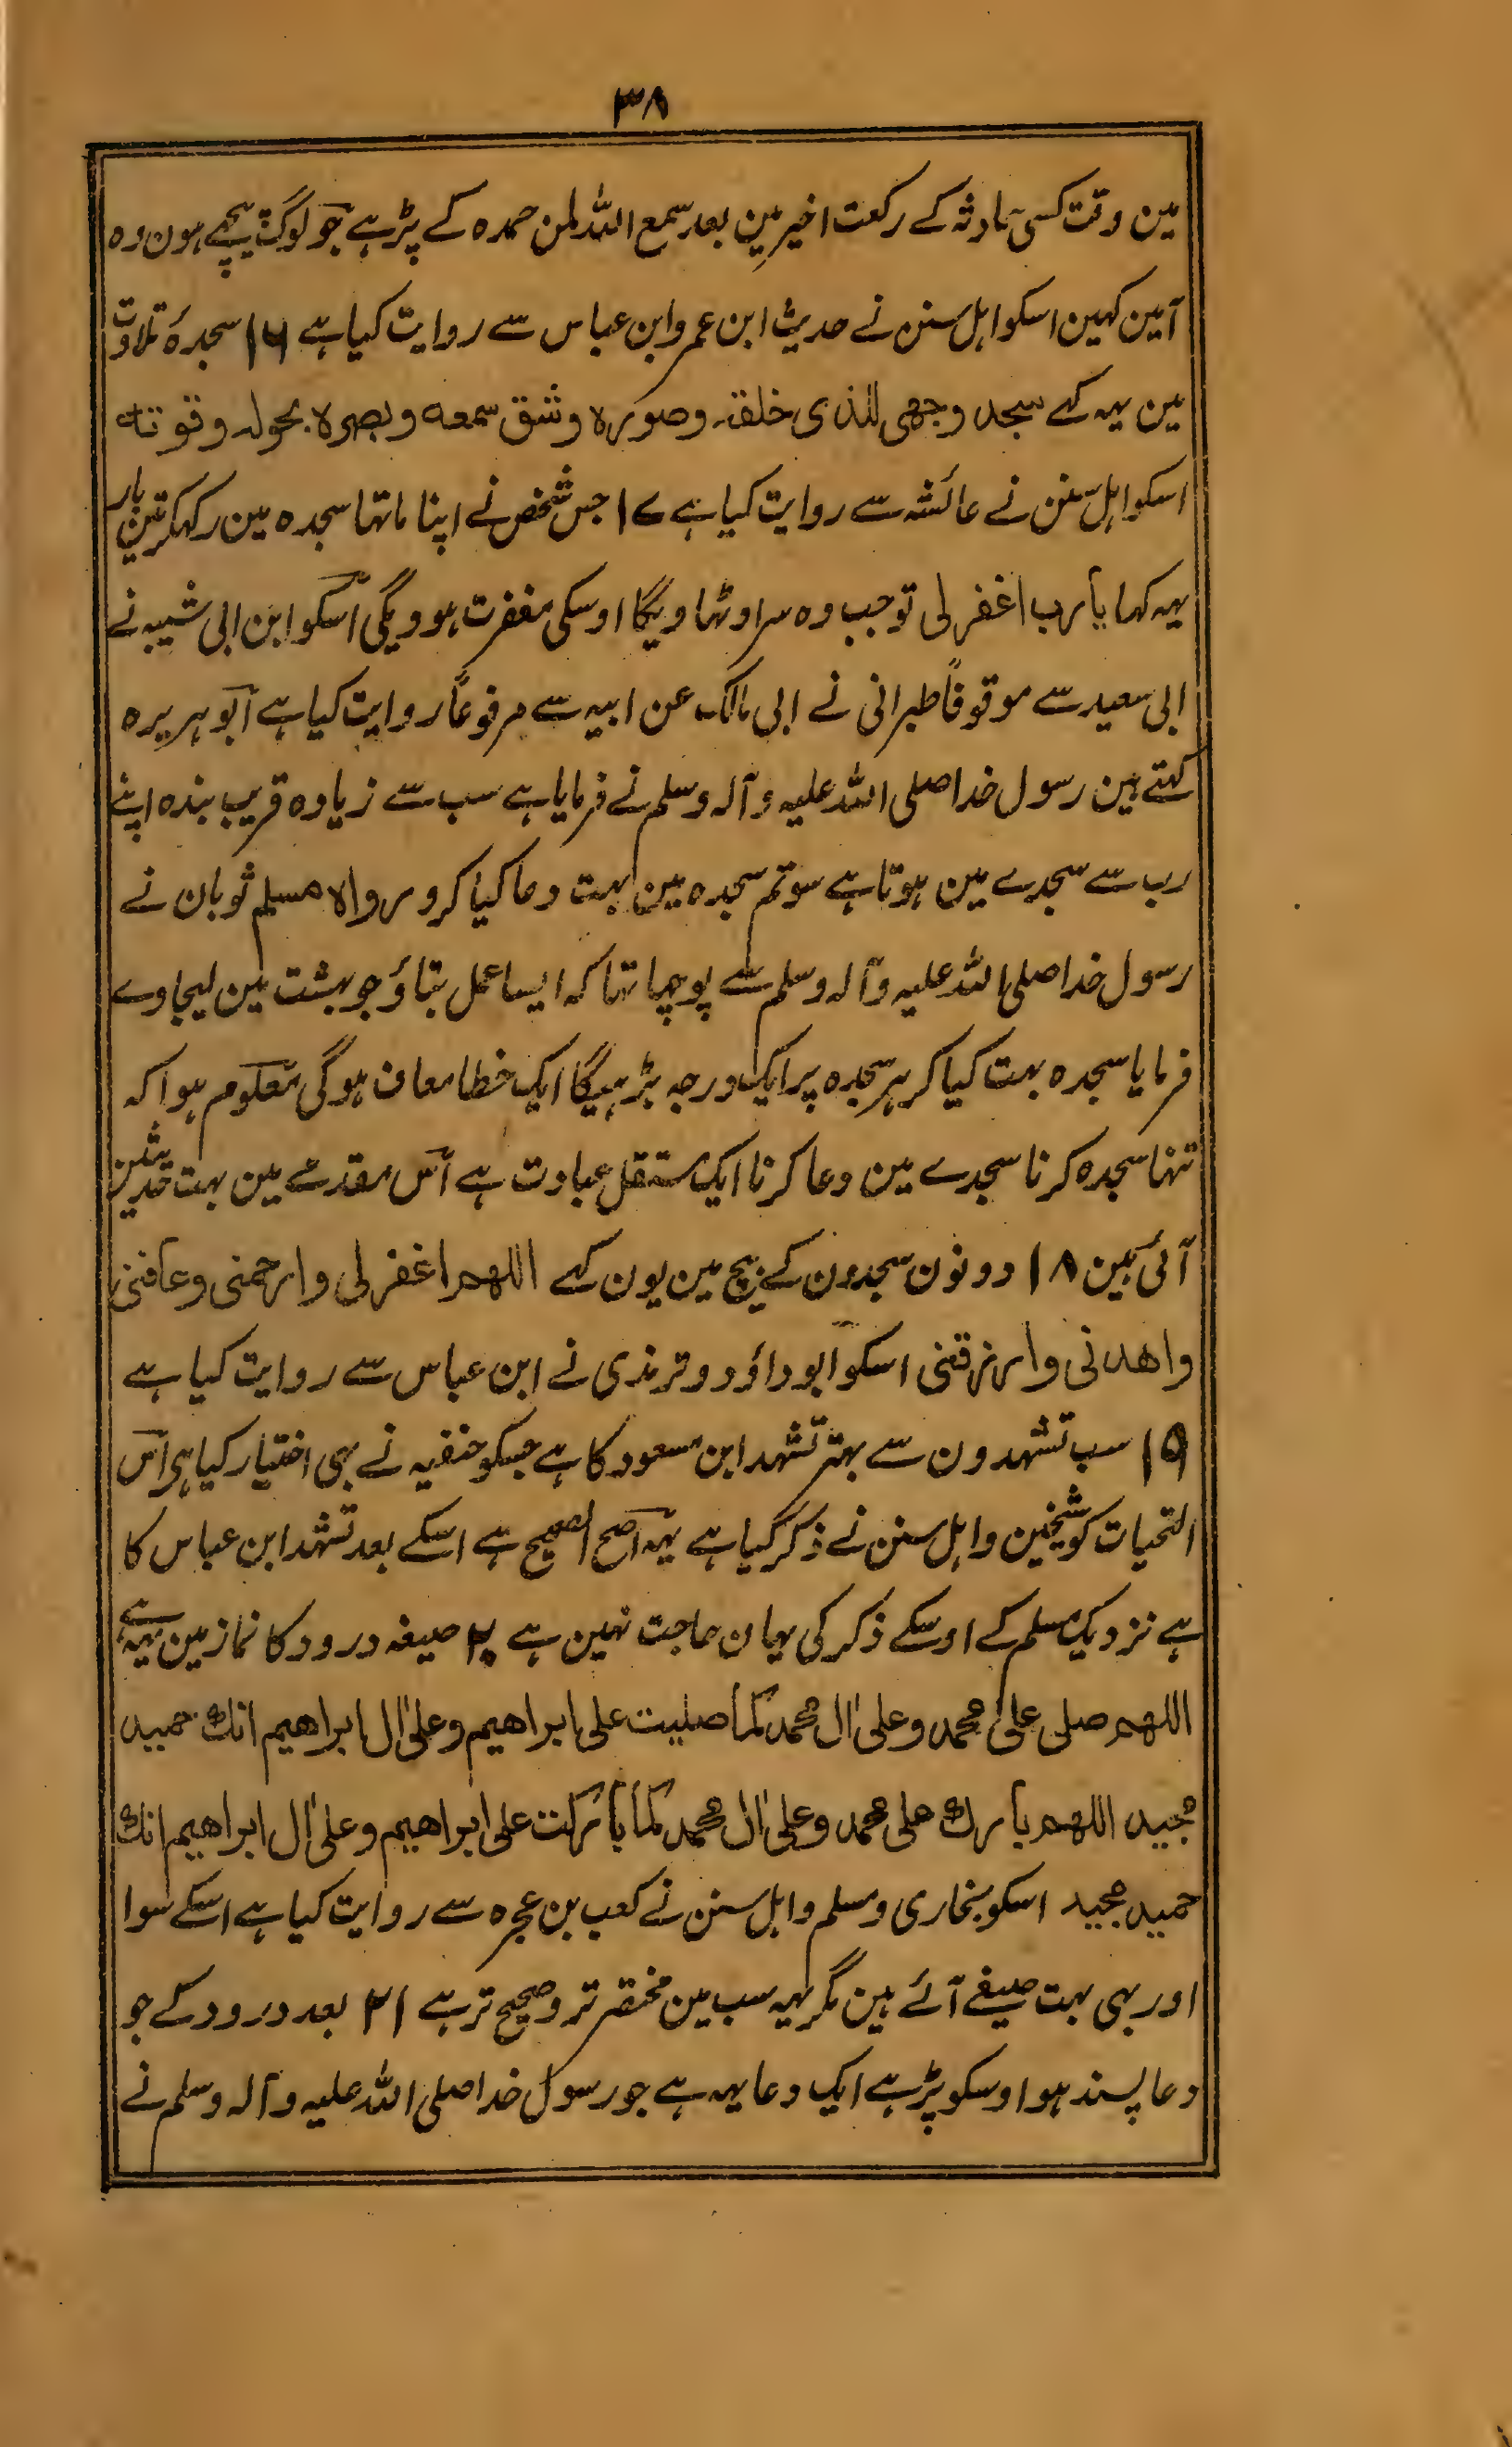 ۳۸
مین وقت کسی حادثہ کے رکعت اخیر مین بعد سمع اللہ لمن حمدہ کے پڑہے جو لوگ پیچھے ہون وہ
آمین کہین اسکو اہل سنن نے حدیث ابن عمر و ابن عباس سے روایت کیا ہے ۱۶ سجدۂ تلاوت
مین یہہ کہے سجد وجھی للذی خلقہ وصورہ وشق سمعہ وبصرہ بحولہ وقوتہ
اسکو اہل سنن نے عائشہ سے روایت کیا ہے ۱۷ جس شخص نے اپنا ماتھا سجدہ مین رکہکر تین بار
یہہ کہا یا رب اغفر لی تو جب وہ سر اوٹھاویگا اوسکی مغفرت ہوویگی اسکو ابن ابی شیبہ نے
ابی سعید سے موقوفاً طبرانی نے ابی مالک عن ابیہ سے مرفوعاً روایت کیا ہے ابو ہریرہ
کہتے ہین رسول خدا صلی اللہ علیہ وآلہ وسلم نے فرمایا ہے سب سے زیادہ قریب بندہ اپنے
رب سے سجدے مین ہوتا ہے سو تم سجدہ مین بہت دعا کیا کرو رواہ مسلم ثوبان نے
رسول خدا صلی اللہ علیہ وآلہ وسلم سے پوچھا تھا کہ ایسا عمل بتاؤ جو بہشت مین لیجاوے
فرمایا سجدہ بہت کیا کر ہر سجدہ پر ایک درجہ بڑہیگا ایک خطا معاف ہوگی معلوم ہوا کہ
تنہا سجدہ کرنا سجدے مین دعا کرنا ایک مستقل عبادت ہے اس مقدمے مین بہت حدیثین
آئی ہین ۱۸ دونون سجدون کے بیچ مین یون کہے اللھم اغفر لی وارحمنی وعافنی
واھدنی وارزقنی اسکو ابو داؤد و ترمذی نے ابن عباس سے روایت کیا ہے
۱۹ سب تشہدون سے بہتر تشہد ابن مسعود کا ہے جسکو حنفیہ نے بہی اختیار کیا ہی اس
التحیات کو شیخین و اہل سنن نے ذکر کیا ہے یہہ اصح الصحیح ہے اسکے بعد تشہد ابن عباس کا
ہے نزدیک مسلم کے اوسکے ذکر کی یہان حاجت نہین ہے ۲۰ صیغہ درود کا نماز مین یہہ ہے
اللھم صلی علی محمد وعلی اٰل محمد کما صلیت علی ابراھیم وعلی اٰل ابراھیم انک حمید
مجید اللھم بارک علی محمد وعلی اٰل محمد کما بارکت علی ابراھیم وعلی اٰل ابراھیم انک
حمید مجید اسکو بخاری و مسلم و اہل سنن نے کعب بن عجرہ سے روایت کیا ہے اسکے سوا
اور بہی بہت صیغے آئے ہین مگر یہہ سب مین مختصر تر و صحیح تر ہے ۲۱ بعد درود کے جو
دعا پسند ہو اوسکو پڑہے ایک دعا یہہ ہے جو رسول خدا صلی اللہ علیہ وآلہ وسلم نے